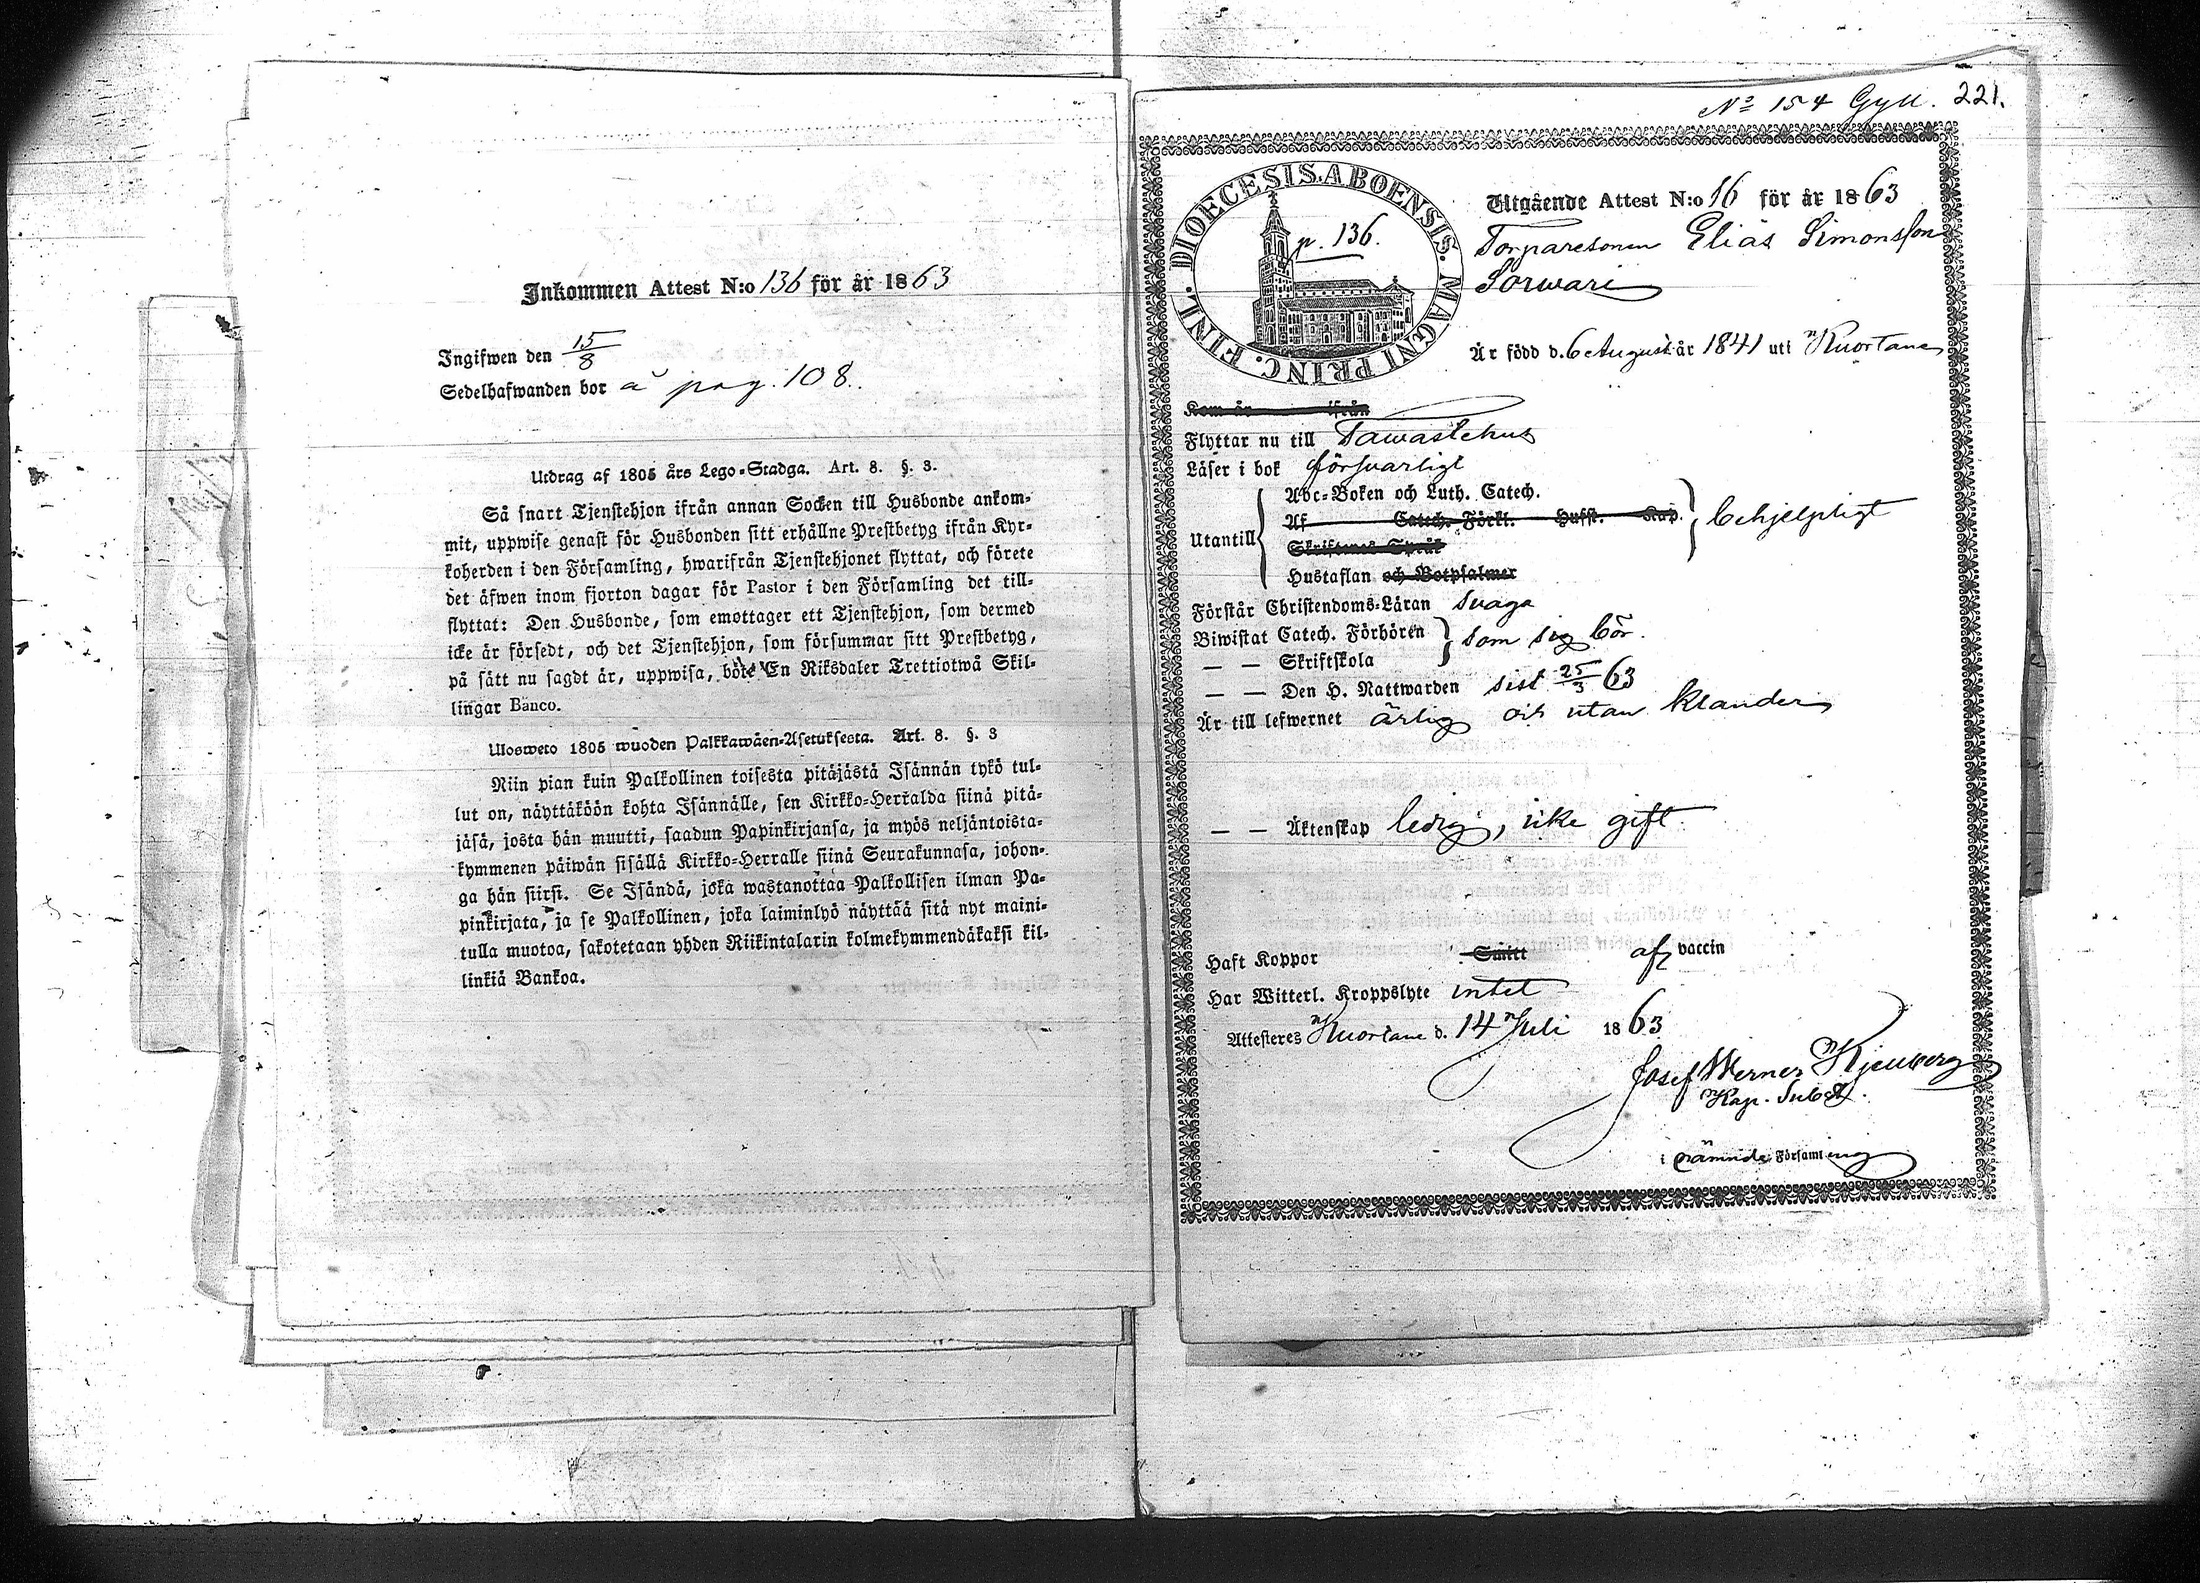 Inkommen Attest N:o 136 för år 1863
Ingifwen den 15/8
Sedelhafwanden bor å pag. 108.
Utdrag af 1805 års Lego-Stadga. Art. 8. §. 3.
Så snart Tjenstehjon ifrån annan Socken till Husbonde ankom-
mit, uppwise genast för Husbonden sitt erhållne Prestbetyg ifrån Kyr-
koherden i den Församling, hwarifrån Tjenstehjonet flyttat, och förete
det äfwen inom fjorton dagar för Pastor i den Församling det till-
flyttat: Den Husbonde, som emottager ett Tjenstehjon, som dermed
icke är försedt, och det Tjenstehjon, som försummar sitt Prestbetyg,
på sätt nu sagdt är, uppwisa, böte En Riksdaler Trettiotwå Skil-
lingar Banco.
Ulosweto 1805 wuoden Palkkawäen-Asetuksesta. Art. 8. §. 3
Niin pian kuin Palkollinen toisesta pitäjästä Isännän tykö tul-
lut on, näyttäköön kohta Isännälle, sen Kirkko-Herralda siinä pitä-
jäsä, josta hän muutti, saadun Papinkirjansa, ja myös neljäntoista-
kymmenen päiwän sisällä Kirkko-Herralle siinä Seurakunnasa, johon-
ga hän siirsi. Se Isändä, joka wastanottaa Palkollisen ilman Pa-
pinkirjata, ja se Palkollinen, joka laiminlyö näyttää sitä nyt maini-
tulla muotoa, sakotetaan yhden Riikintalarin kolmekymmendäkaksi kil-
linkiä Bankoa.
No 154 Gyll. 221.
DIOECESIS. ABOENSIS. MAGNI PRINC. FINL.
p. 136.
Utgående Attest N:o 16 för år 1863
Torparesonen Elias Simonsson
Sorwari
Är född d. 6 Augusti år 1841 uti Kuortane
Kom år ifrån
Flyttar nu till Tawastehus
Läser i bok försvarligt
Utantill
Abc-Boken och Luth. Catech.
Af Catech. Förkl. Husst. Kap.
behjelpligt
Skriftenes Språk
Hustaflan och Botpsalmer
Förstår Christendoms-Läran svaga
Biwistat Catech. Förhören
som sig bör.
— — Skriftskola
— — Den H. Nattwarden sist 25/3 63
Är till lefwernet ärlig och utan klander
— — Äktenskap ledig, icke gift
Haft Koppor Smitt af vaccin
Har Witterl. Kroppslyte intet
Attesteres Kuortane d. 14 Juli 1863
Josef Werner
Kap. Subst.
i nämnde Församling